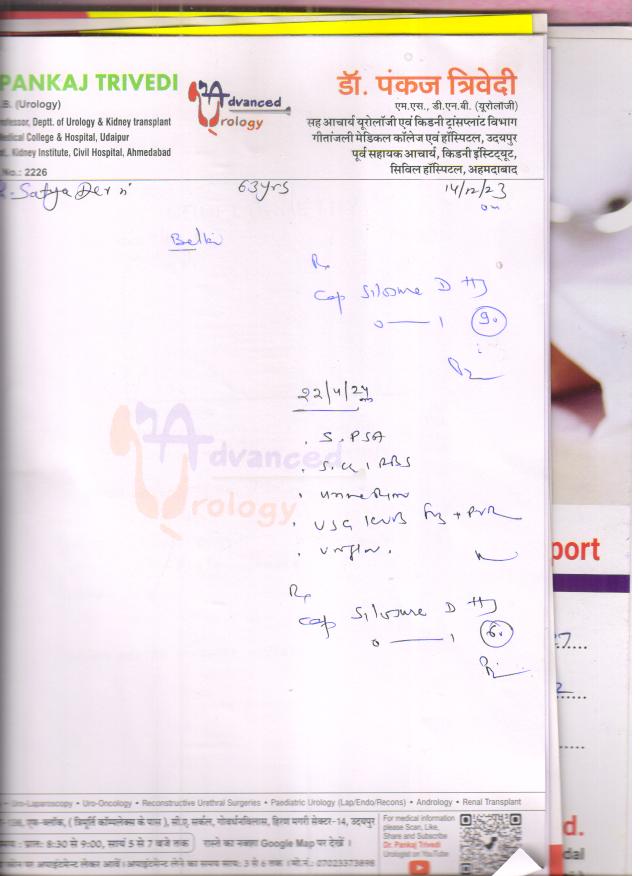 PANKAJ TRIVEDI
.B. (Urology)
rofessor, Deptt. of Urology & Kidney transplant
edical College & Hospital, Udaipur
Kidney Institute, Civil Hospital, Ahmedabad
No.: 2226
Advanced
Urology
डॉ. पंकज त्रिवेदी
एम.एस., डी.एन.बी. (यूरोलॉजी)
सह आचार्य यूरोलॉजी एवं किडनी ट्रांसप्लांट विभाग
गीतांजली मेडिकल कॉलेज एवं हॉस्पिटल, उदयपुर
पूर्व सहायक आचार्य, किडनी इंस्टिट्यूट,
सिविल हॉस्पिटल, अहमदाबाद
63yrs 14/12/23
Rx
Cap Silosure D
0 — 1 90
22/4/24
. S. PSA
Advanced
Urology
. USG KUB + PVR
port
Rx
Cap Silosure D
0 — 1
Uro-Laparoscopy • Uro-Oncology • Reconstructive Urethral Surgeries • Paediatric Urology (Lap/Endo/Recons) • Andrology • Renal Transplant
एफ-ब्लॉक, ( त्रिमूर्ति कॉम्पलेक्स के पास ), सी.ए. सर्कल, गोवर्धनविलास, हिरण मगरी सेक्टर-14, उदयपुर
प्रातः 8:30 से 9:00, सायं 5 से 7 बजे तक रास्ते का नक्शा Google Map पर देखें ।
अपाइंटमेन्ट लेकर आवें । अपाइंटमेन्ट लेने का समय सायः 3 से 6 तक । मो.नं.: 07023373898
For medical information
please Scan, Like,
Share and Subscribe
Dr. Pankaj Trivedi
Urologist on YouTube
d.